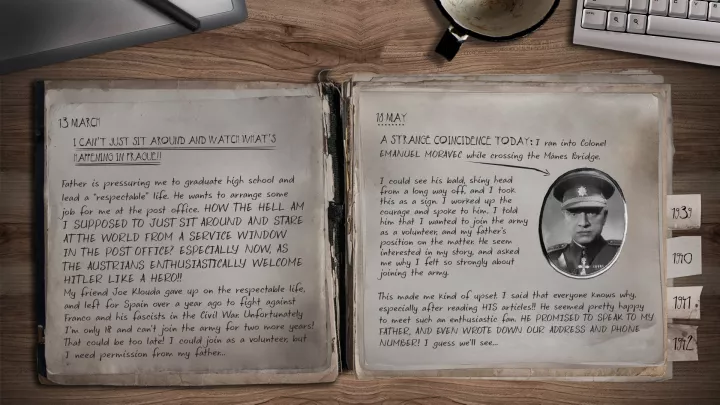 13 MARCH
I CAN'T JUST SIT AROUND AND WATCH WHAT'S
HAPPENING IN PRAGUE!!
Father is pressuring me to graduate high school and
lead a "respectable" life. He wants to arrange some
job for me at the post office. HOW THE HELL AM
I SUPPOSED TO JUST SIT AROUND AND STARE
AT THE WORLD FROM A SERVICE WINDOW
IN THE POST OFFICE? ESPECIALLY NOW, AS
THE AUSTRIANS ENTHUSIASTICALLY WELCOME
HITLER LIKE A HERO!!
My friend Joe Klouda gave up on the respectable life,
and left for Spain over a year ago to fight against
Franco and his fascists in the Civil War. Unfortunately
I'm only 18 and can't join the army for two more years!
That could be too late! I could join as a volunteer, but
I need permission from my father..
18 MAY
A STRANGE COINCIDENCE TODAY: I ran into Colonel
EMANUEL MORAVEC while crossing the Mánes Bridge.
I could see his bald, shiny head
from a long way off, and I took
this as a sign. I worked up the
courage and spoke to him. I told
him that I wanted to join the army
as a volunteer, and my father's
position on the matter. He seem
interested in my story, and asked
me why I felt so strongly about
joining the army.
This made me kind of upset. I said that everyone knows why,
especially after reading HIS articles!! He seemed pretty happy
to meet such an enthusiastic fan. HE PROMISED TO SPEAK TO MY
FATHER, AND EVEN WROTE DOWN OUR ADDRESS AND PHONE
NUMBER! I guess we'll see...
1939
1940
1941
1942